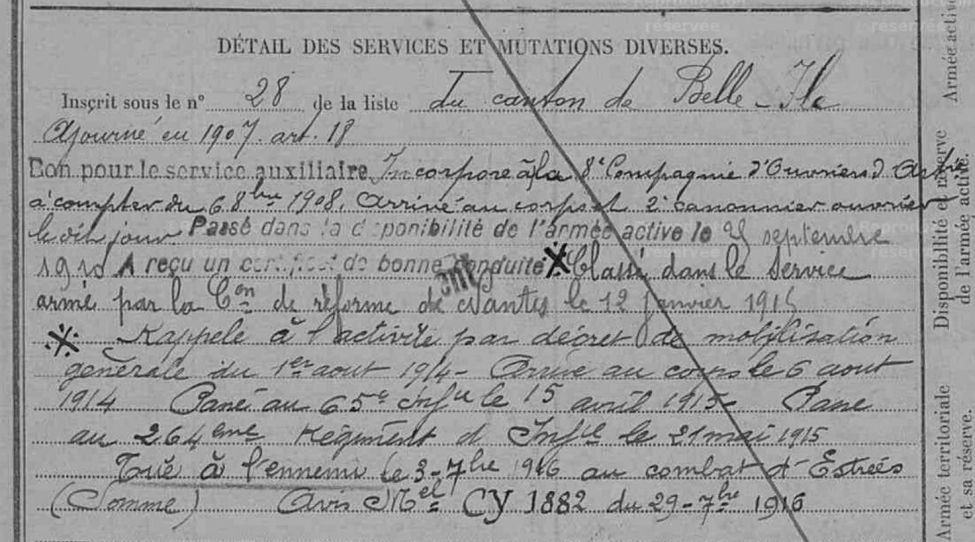 DÉTAIL DES SERVICES ET MUTATIONS DIVERSES.
Inscrit sous le n° 28 de la liste du canton de Belle-Ile
Ajourné en 1907. art. 18
Bon pour le service auxiliaire. Incorporé à la 8e Compagnie d'Ouvriers d'Artie
à compter du 6 8bre 1908. Arrivé au corps et 2e canonnier ouvrier
le dit jour Passé dans la disponibilité de l'armée active le 25 septembre
1910 A reçu un certificat de bonne conduite. Classé dans le Service
armé par la Con de réforme de Nantes le 12 Janvier 1915
Rappelé à l'activité par décret de mobilisation
générale du 1er aout 1914 - Arrivé au corps le 6 aout
1914 Passé au 65e Infie le 15 avril 1915 - Passé
au 264eme Régiment d'Infie le 21 mai 1915
Tué à l'ennemi le 3-7bre 1916 au combat d'Estrées
(Somme) Avis Mel CY 1882 du 29-7bre 1916
Armée active
Disponibilité et réserve
de l'armée active.
Armée territoriale
et sa réserve.